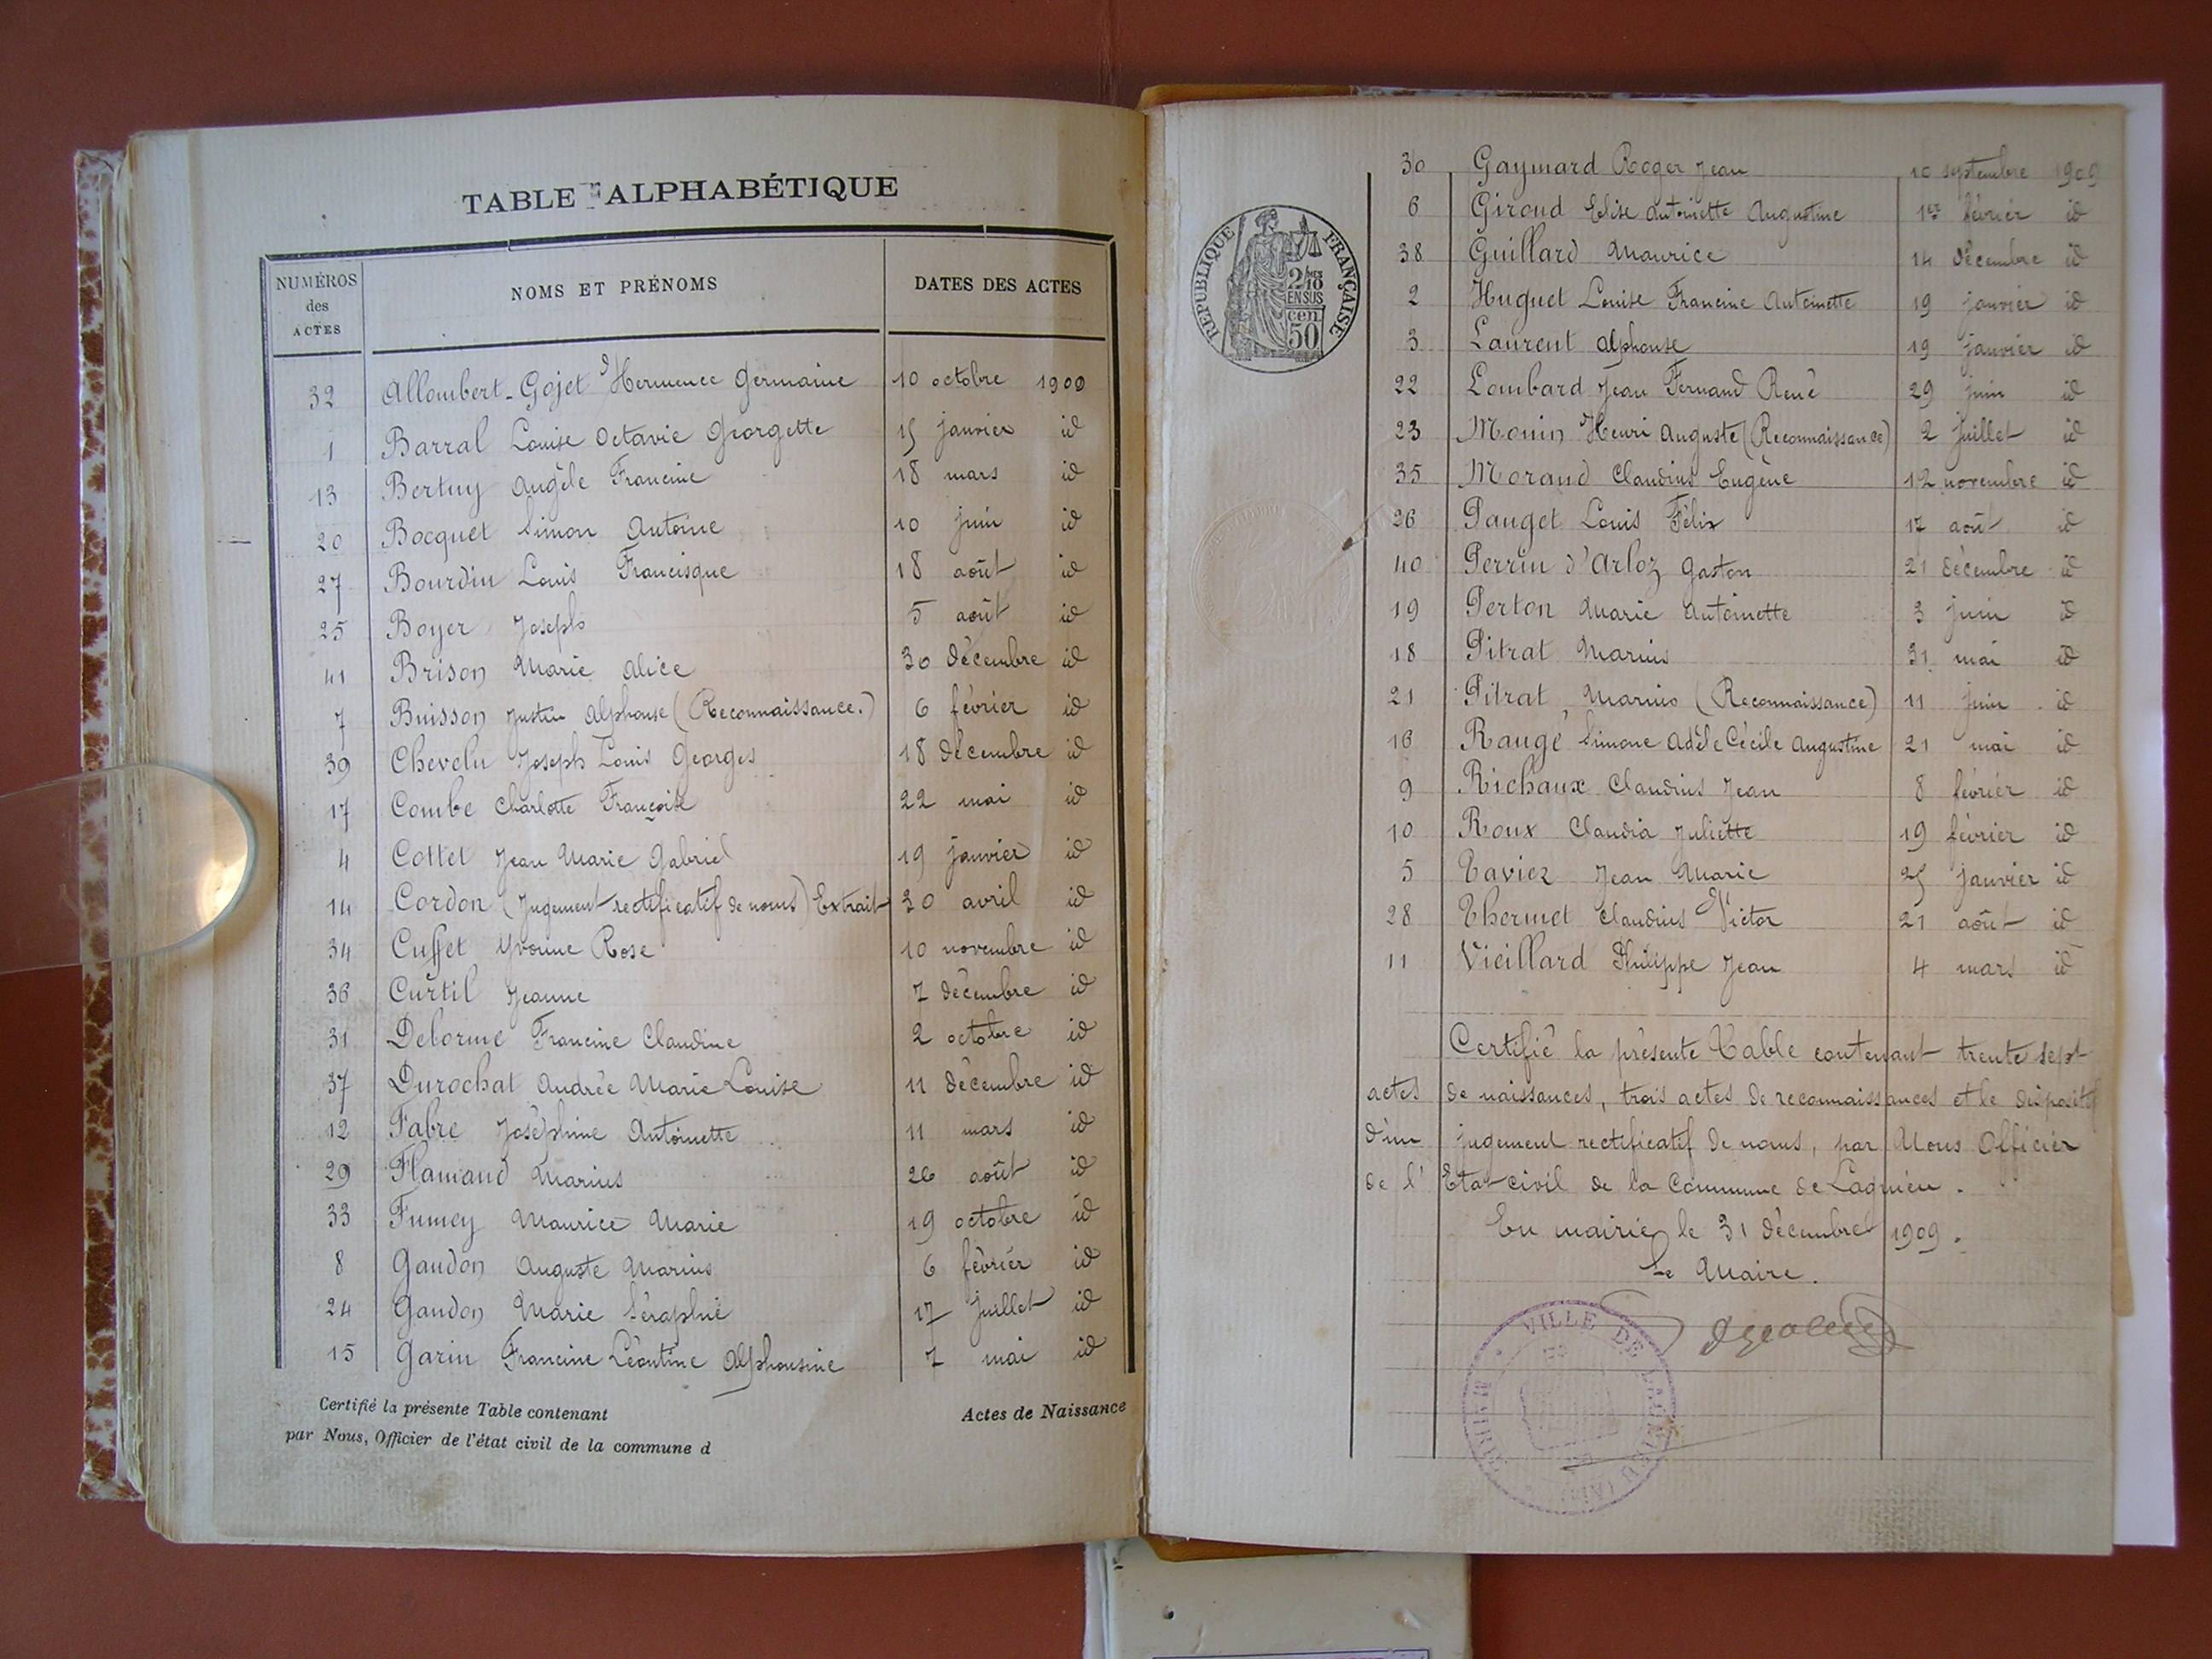 TABLE ALPHABÉTIQUE
NUMÉROS des ACTES NOMS ET PRÉNOMS DATES DES ACTES
32 Allombert-Gojet Hermence Germaine 10 octobre 1909
1 Barral Louise Octavie Georgette 15 janvier id
13 Bertuy Angèle Francine 18 mars id
20 Bocquet Simon Antoine 10 juin id
27 Bourdin Louis Francisque 18 août id
25 Boyer Joseph 5 août id
41 Brison Marie Alice 30 décembre id
7 Buisson Justin Alphonse (Reconnaissance.) 6 février id
39 Chevelu Joseph Louis Georges 18 décembre id
17 Combe Charlotte Françoise 22 mai id
4 Cottet Jean Marie Gabriel 19 janvier id
14 Cordon (Jugement rectificatif de noms) Extrait 30 avril id
34 Cuffet Yvonne Rose 10 novembre id
36 Curtil Jeanne 7 décembre id
31 Delorme Francine Claudine 2 octobre id
37 Durochat Andrée Marie Louise 11 décembre id
12 Fabre Joséphine Antoinette 11 mars id
29 Flamand Marius 26 août id
33 Fumey Maurice Marie 19 octobre id
8 Gaudon Auguste Marius 6 février id
24 Gaudon Marie Séraphie 17 juillet id
15 Garin Francine Léontine Alphonsine 7 mai id
Certifié la présente Table contenant Actes de Naissance
par Nous, Officier de l'état civil de la commune d
RÉPUBLIQUE FRANÇAISE
2/10 EN SUS
cen 50
30 Gaymard Roger Jean 10 septembre 1909
6 Giroud Elise Antoinette Augustine 1er février id
38 Guillard Maurice 14 décembre id
2 Huguet Louise Francine Antoinette 19 janvier id
3 Laurent Alphonse 19 janvier id
22 Lombard Jean Fernand René 29 juin id
23 Mouin Henri Auguste (Reconnaissance) 2 juillet id
35 Morand Claudius Eugène 12 novembre id
26 Pauget Louis Félix 17 août id
40 Perrin d'Arloz Gaston 21 décembre id
19 Perton Marie Antoinette 3 juin id
18 Pitrat Marius 31 mai id
21 Pitrat Marius (Reconnaissance) 11 juin id
16 Raugé Simone Adèle Cécile Augustine 21 mai id
9 Richaux Claudius Jean 8 février id
10 Roux Claudia Juliette 19 février id
5 Tavier Jean Marie 25 janvier id
28 Thermet Claudius Victor 21 août id
11 Vieillard Philippe Jean 4 mars id
Certifié la présente Table contenant trente sept
actes de naissances, trois actes de reconnaissances et le dispositif
d'un jugement rectificatif de noms, par Nous Officier
de l'Etat-civil de la Commune de Lagnieu.
En mairie, le 31 décembre 1909.
Le Maire.
VILLE DE LAGNIEU (AIN) MAIRIE